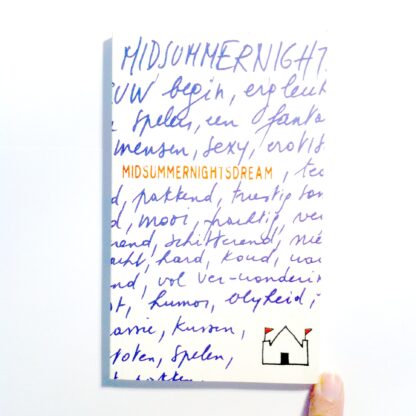 MIDSUMMERNIGHT
UW begin, erg leuk
spelen, een fanta
mensen, sexy, erotis
MIDSUMMERNIGHTSDREAM
d, pakkend, treurig
d, mooi, prachtig, ve
rend, schitterend, nie
acht, hard, koud,
nd, vol ver-wonderin
t, humor, blyheid,
assie, kussen,
spelen,